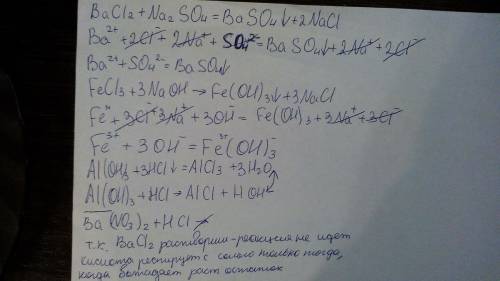 BaCl₂+Na₂SO₄=BaSO₄↓+2NaCl
Ba²⁺+2Cl⁻+2Na⁺+SO₄²⁻=BaSO₄↓+2Na⁺+2Cl⁻
Ba²⁺+SO₄²⁻=BaSO₄↓
FeCl₃+3NaOH→Fe(OH)₃↓+3NaCl
Fe³⁺+3Cl⁻+3Na⁺+3OH⁻=Fe(OH)₃+3Na⁺+3Cl⁻
Fe³⁺+3OH⁻=Fe(OH)₃
Al(OH)₃+3HCl=AlCl₃+3H₂O
Al(OH)₃+HCl→AlCl+HOH
Ba(NO₃)₂+HCl
т.к. BaCl₂ растворим-реакция не идет
кислота реагирует с солью только тогда,
когда выпадает раст остаток